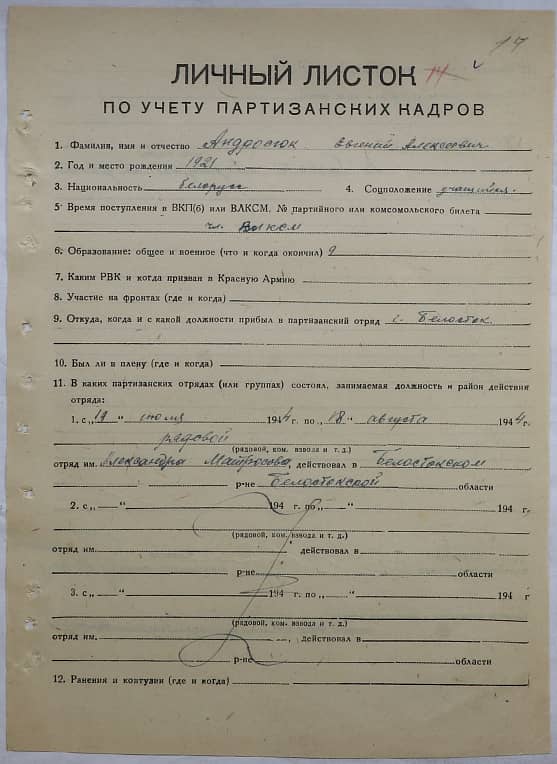 17
ЛИЧНЫЙ ЛИСТОК 14
ПО УЧЕТУ ПАРТИЗАНСКИХ КАДРОВ
1. Фамилия, имя и отчество Андросюк Евгений Алексеевич
2. Год и место рождения 1921
3. Национальность белорус 4. Соцположение учащийся.
5. Время поступления в ВКП(б) или ВЛКСМ, № партийного или комсомольского билета
чл. ВЛКСМ
6. Образование: общее и военное (что и когда окончил) 9
7. Каким РВК и когда призван в Красную Армию
8. Участие на фронтах (где и когда)
9. Откуда, когда и с какой должности прибыл в партизанский отряд г. Белосток.
10. Был ли в плену (где и когда)
11. В каких партизанских отрядах (или группах) состоял, занимаемая должность и район действия
отряда:
1. с „19 " июля 1944 г. по „18" августа 1944 г.
рядовой
(рядовой, ком. взвода и т. д.)
отряд им. Александра Матросова, действовал в Белостокском
р-не Белостокской области
2. с „ " 194 г. по „ " 194 г.
(рядовой, ком. взвода и т. д.)
отряд им. действовал в
р-не области
3. с „ " 194 г. по „ " 194 г
(рядовой, ком. взвода и т. д.)
отряд им. , действовал в
р-не области
12. Ранения и контузии (где и когда)